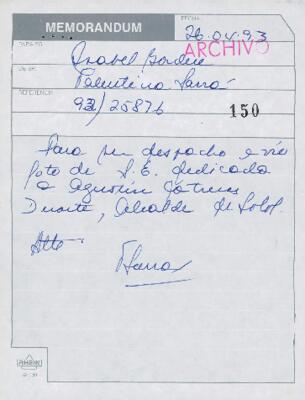 MEMORANDUM
FECHA
26.04.93
ARCHIVO
PARA
Isabel
DE
Valentina
REFERENCIA
93/25876
150
Para su despacho envío
foto de S.E. dedicada
a Agustín
Duarte, Alcalde de
Atte
RHEIN